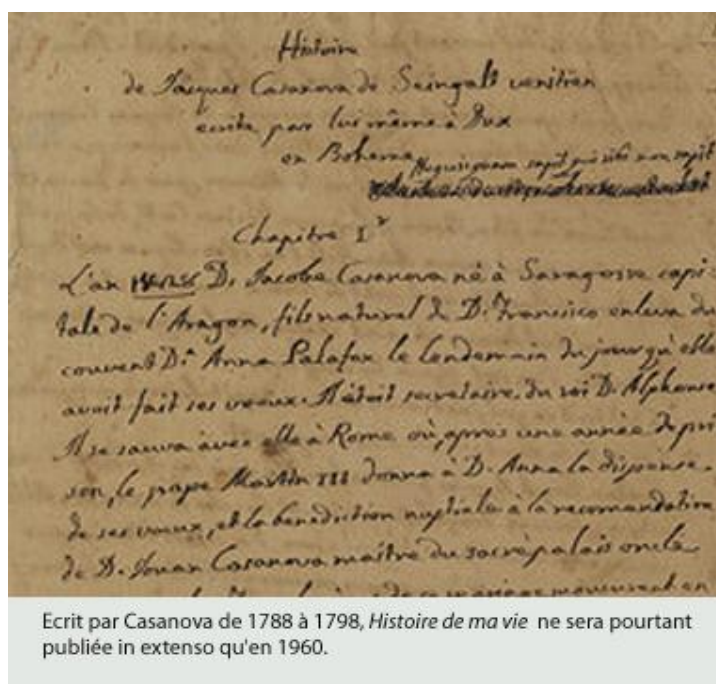 Histoire
de Jacques Casanova de Seingalt venitien
ecrite par lui même à Dux
en Boheme
Nequicquam sapit qui sibi non sapit
Chapitre I.r
L'an D. Jacobe Casanova né à Saragosse capi-
tale de l'Aragon, fils naturel de D. Francisco enleva du
couvent D.a Anna Palafox le lendemain du jour qu'elle
avoit fait ses vœux. Il étoit secretaire du roi D. Alphonse
Il se sauva avec elle à Rome où, apres une année de pri
son, le pape Martin III donna à D. Anna la dispense
de ses vœux, et la benediction nuptiale à la recomandation
de D. Jouan Casanova maître du sacré palais oncle
Ecrit par Casanova de 1788 à 1798, Histoire de ma vie ne sera pourtant
publiée in extenso qu'en 1960.